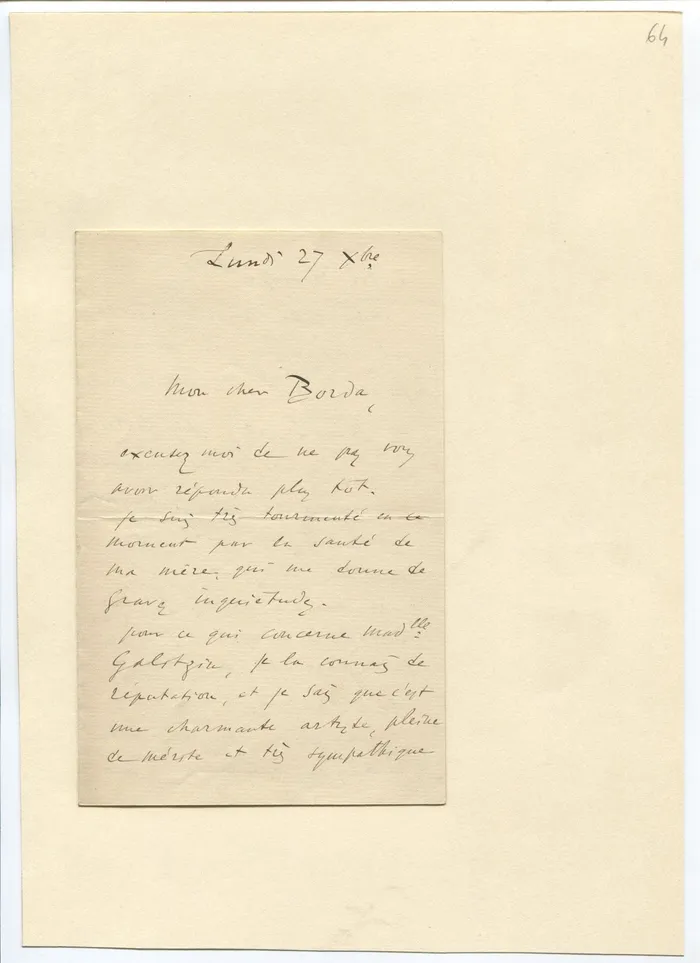 64
Lundi 27 Xbre
Mon cher Borda,
excusez moi de ne pas vous
avoir répondu plus tôt.
je suis très tourmenté en ce
moment par la santé de
ma mère, qui me donne de
graves inquiétudes.
pour ce qui concerne Madlle
Galitzin, je la connais de
réputation, et je sais que c'est
une charmante artiste, pleine
de mérite et très sympathique